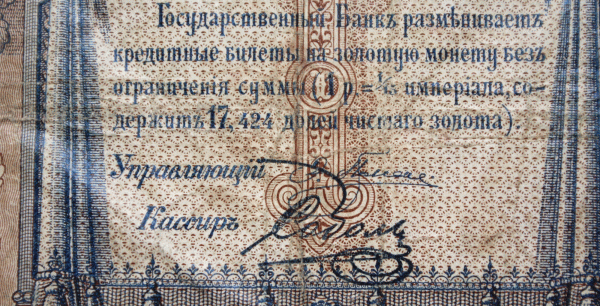 Государственный Банкъ размѣниваетъ
кредитные билеты на золотую монету безъ
ограниченія суммы (1 р. = 1/15 имперіала, со-
держитъ 17,424 долей чистаго золота).
Управляющій
Кассиръ